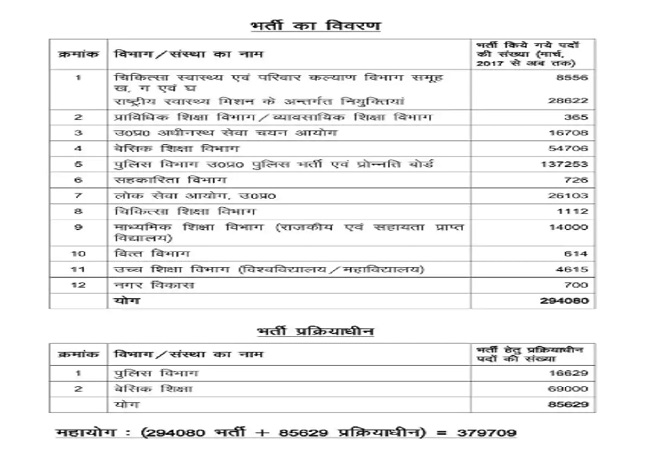 भर्ती का विवरण
क्रमांक विभाग/संस्था का नाम भर्ती किये गये पदों की संख्या (मार्च, 2017 से अब तक)
1 चिकित्सा स्वास्थ्य एवं परिवार कल्याण विभाग समूह ख, ग एवं घ 8556
राष्ट्रीय स्वास्थ्य मिशन के अन्तर्गत नियुक्तियां 28622
2 प्राविधिक शिक्षा विभाग/व्यावसायिक शिक्षा विभाग 365
3 उ0प्र0 अधीनस्थ सेवा चयन आयोग 16708
4 बेसिक शिक्षा विभाग 54706
5 पुलिस विभाग उ0प्र0 पुलिस भर्ती एवं प्रोन्नति बोर्ड 137253
6 सहकारिता विभाग 726
7 लोक सेवा आयोग, उ0प्र0 26103
8 चिकित्सा शिक्षा विभाग 1112
9 माध्यमिक शिक्षा विभाग (राजकीय एवं सहायता प्राप्त विद्यालय) 14000
10 वित्त विभाग 614
11 उच्च शिक्षा विभाग (विश्वविद्यालय/महाविद्यालय) 4615
12 नगर विकास 700
योग 294080
भर्ती प्रक्रियाधीन
क्रमांक विभाग/संस्था का नाम भर्ती हेतु प्रक्रियाधीन पदों की संख्या
1 पुलिस विभाग 16629
2 बेसिक शिक्षा 69000
योग 85629
महायोग : (294080 भर्ती + 85629 प्रक्रियाधीन) = 379709